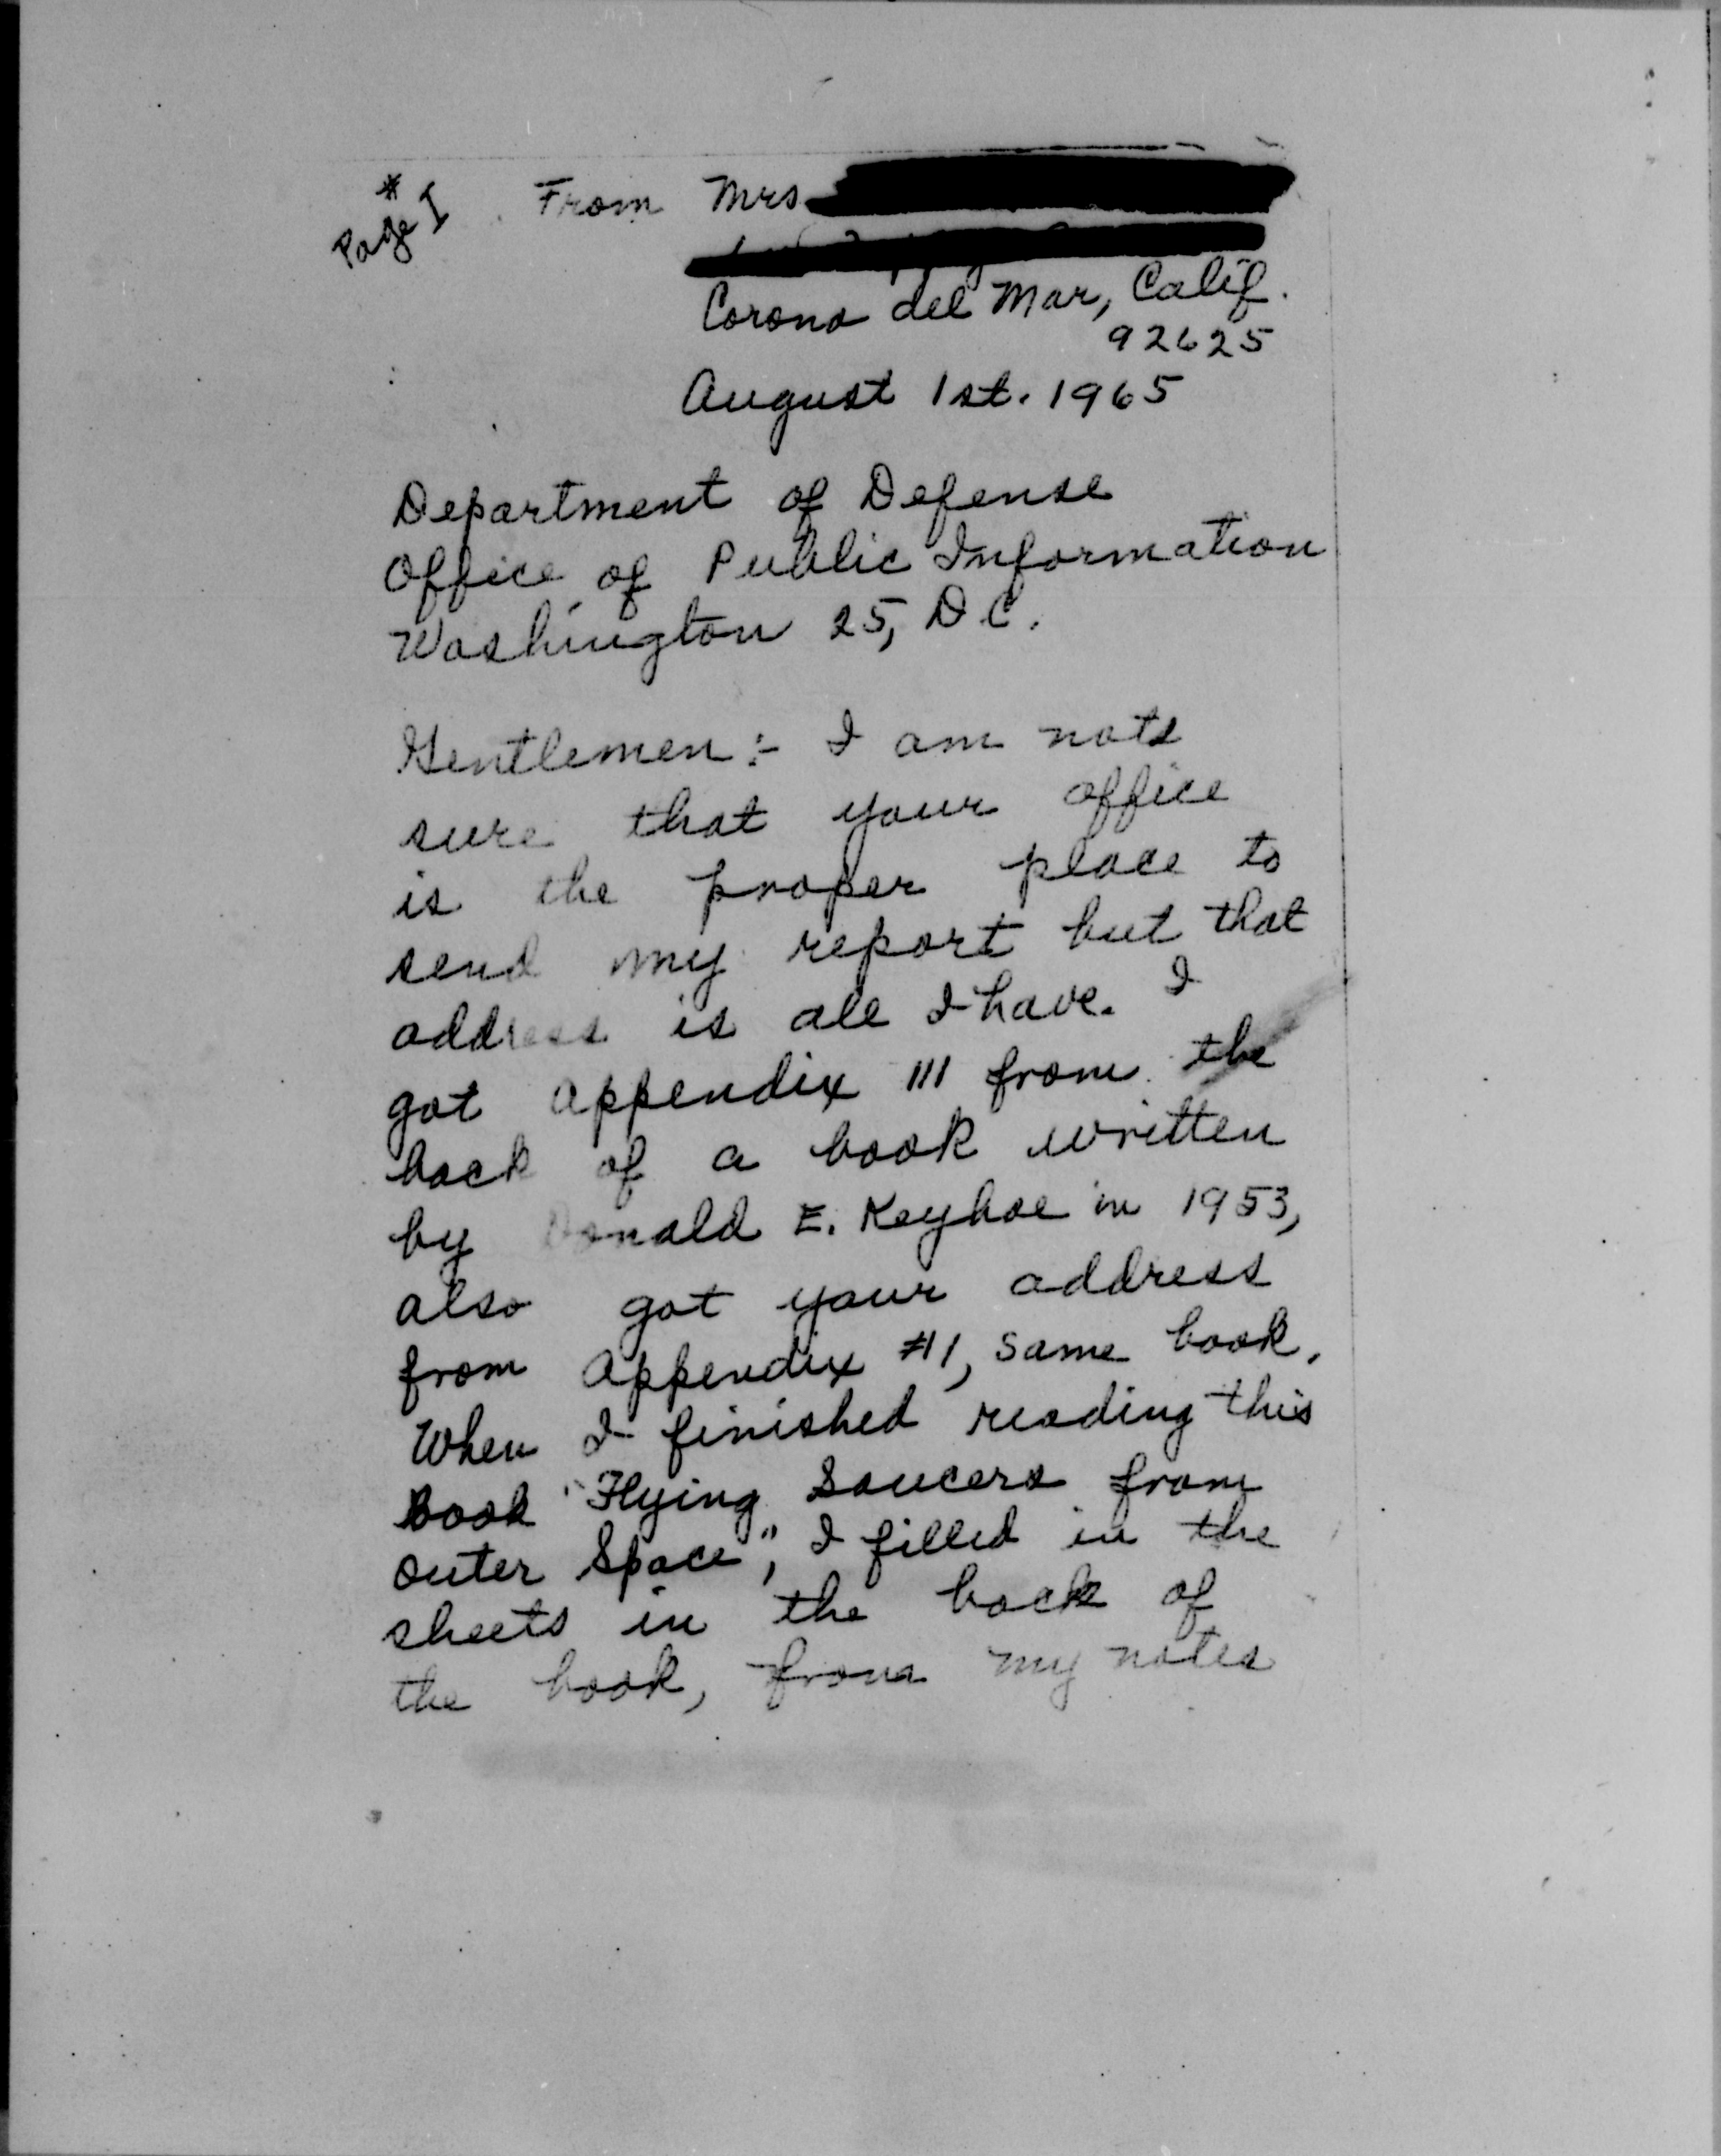 * Page I
From Mrs
Corona del Mar, Calif.
92625
August 1st. 1965
Department of Defense
Office of Public Information
Washington 25, D.C.
Gentlemen:- I am not
sure that your office
is the proper place to
send my report but that
address is all I have. I
got appendix III from the
back of a book written
by Donald E. Keyhoe in 1953,
also got your address
from appendix #1, same book.
When I finished reading this
Book "Flying Saucers from
outer Space", I filled in the
sheets in the back of
the book, from my notes